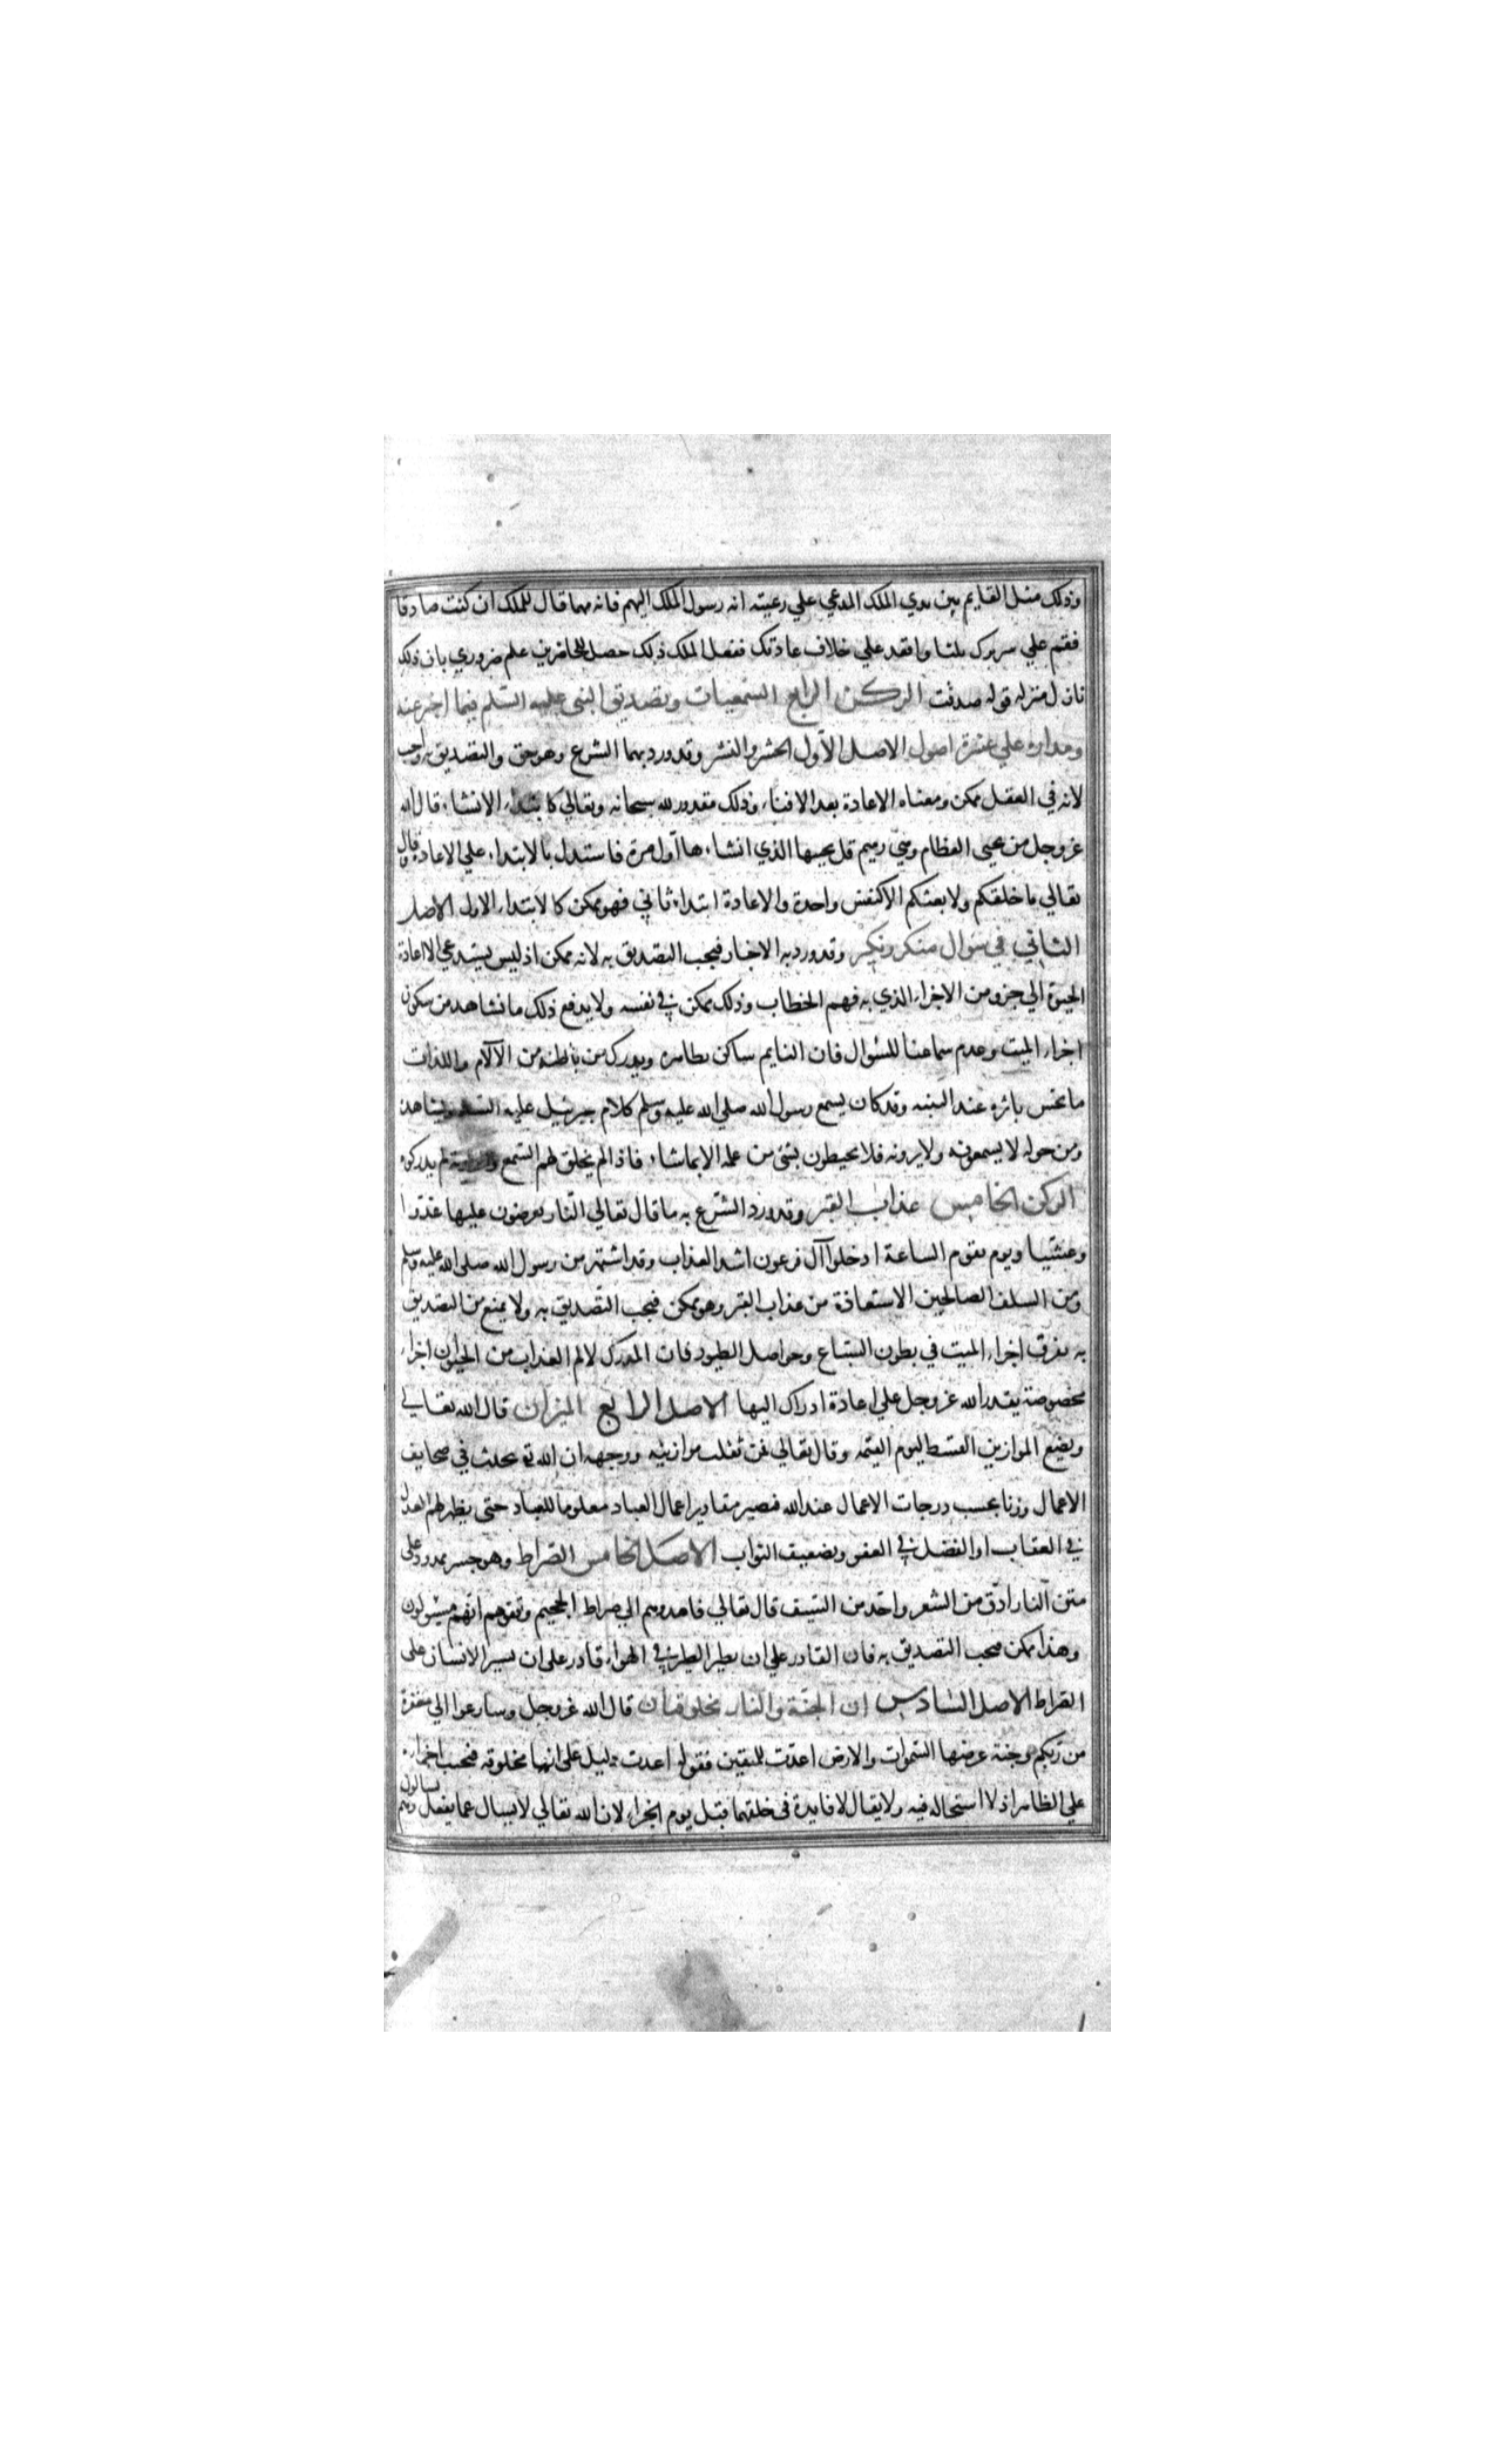 وذلك مثل القايم بين يدي الملك المدعي علي رعيته انه رسول الملك اليهم فانه مهما قال للملك ان كنت صادقا
فقم علي سريرك ثلثا واقعد علي خلاف عادتك ففعل الملك ذلك حصل للحاضرين علم ضروري بان ذلك
نازل منزله قوله صدقت الركن الرابع السمعيات وتصديق النبي عليه السلم فيما اخبر عنه
ومداره علي عشرة اصول الاصل الأول الحشر والنشر وقد ورد بهما الشرع وهو حق والتصديق به واجب
لانه في العقل ممكن ومعناه الاعادة بعد الافناء وذلك مقدور لله سبحانه وتعالي كابتداء الانشاء قال الله
عز وجل من يحيى العظام وهي رميم قل يحييها الذي انشاءها أول مرة فاستدل بالابتداء علي الاعادة وقال
تعالي ما خلقكم ولا بعثكم الا كنفس واحدة والاعادة ابتداء ثاني فهو ممكن كالابتداء الاول الاصل
الثاني في سوال منكر ونكير وقد ورد به الاخبار فيجب التصديق به لانه ممكن اذ ليس يستدعي الا اعادة
الحيوة الي جزو من الاجزاء الذي به فهم الخطاب وذلك ممكن في نفسه ولا يدفع ذلك ما نشاهد من سكون
اجزاء الميت وعدم سماعنا للسؤال فان النايم ساكن بظاهره ويدرك من باطنه من الآلام واللذات
ما يحس باثره عند التنبه وقد كان يسمع رسول الله صلي الله عليه وسلم كلام جبرئيل عليه السلم ويشاهده
ومن حوله لا يسمعونه ولا يرونه فلا يحيطون بشئ من علمه الا بما شاء فاذا لم يخلق لهم السمع والروية لم يدركوه
الركن الخامس عذاب القبر وقد ورد الشرع به ما قال تعالي النار يعرضون عليها غدوا
وعشيا ويوم تقوم الساعة ادخلوا آل فرعون اشد العذاب وقد اشتهر من رسول الله صلى الله عليه وسلم
ومن السلف الصالحين الاستعاذة من عذاب القبر وهو ممكن فيجب التصديق به ولا يمنع من التصديق
به تفرق اجزاء الميت في بطون السباع وحواصل الطيور فان المدرك لالم العذاب من الحيوان اجزاء
مخصوصة يقدر الله عز وجل علي اعادة ادراك اليها الاصل الرابع الميزان قال الله تعالي
ونضع الموازين القسط ليوم القيمه وقال تعالي فمن ثقلت موازينه ووجهه ان الله تع يحدث في صحايف
الاعمال وزنا بحسب درجات الاعمال عند الله فتصير مقادير اعمال العباد معلوما للعباد حتى يظهر لهم العدل
في العقاب او الفضل في العفو وتضعيف الثواب الاصل الخامس الصراط وهو جسر ممدود على
متن النار ادق من الشعر واحد من السيف قال تعالي فاهدوهم الي صراط الجحيم وقفوهم انهم مسئولون
وهذا ممكن فيجب التصديق به فان القادر علي ان يطير الطير في الهواء قادر على ان يسير الانسان على
الصراط الاصل السادس ان الجنة والنار مخلوقتان قال الله عز وجل وسارعوا الي مغفرة
من ربكم وجنة عرضها السموات والارض اعدت للمتقين فقوله اعدت دليل على انها مخلوقه فيجب اجراءه
علي الظاهر اذ لا استحاله فيه ولا يقال لا فايدة في خلقهما قبل يوم الجزاء لان الله تعالي لا يسال عما يفعل وهم يسالون